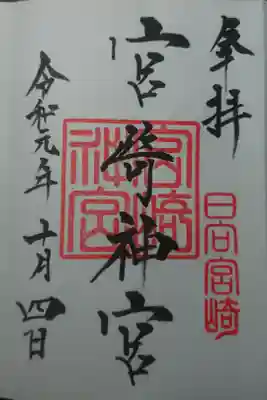 奉拝
日向宮崎
宮崎神宮
宮崎神宮
令和元年十月四日